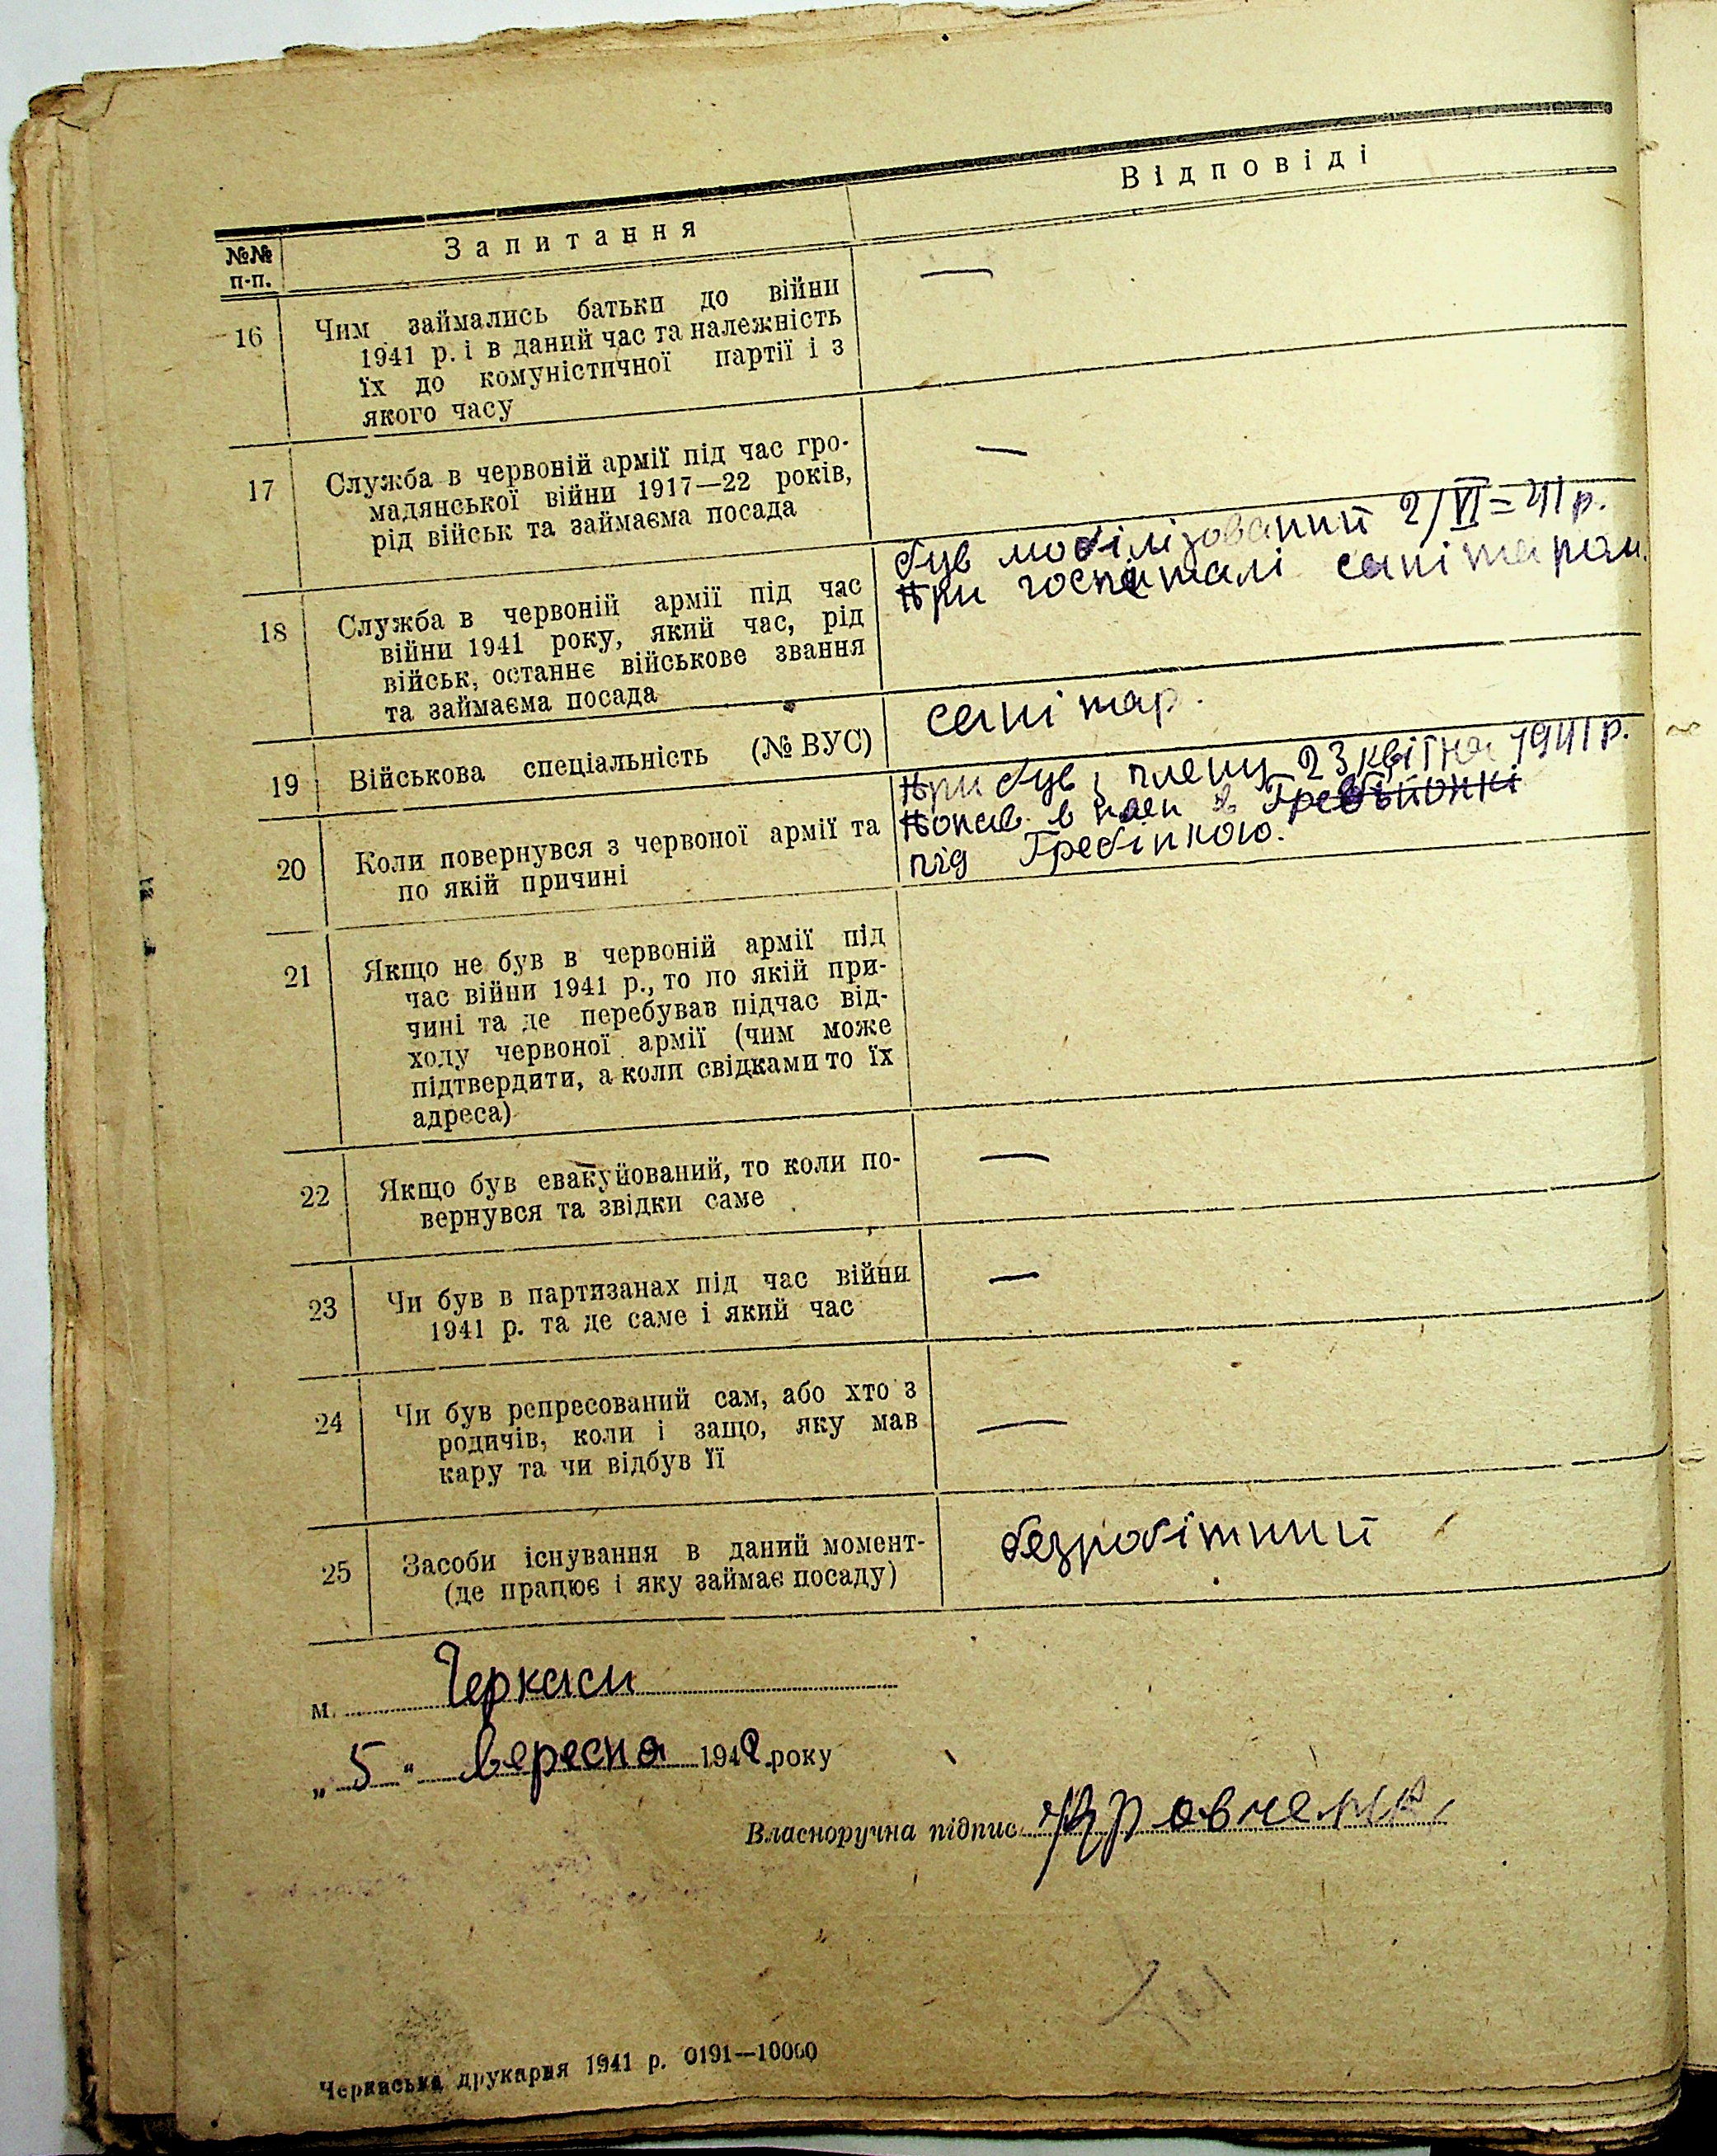 Відповіді
№№ п-п.
Запитання
16 Чим займались батьки до війни —
1941 р. і в даний час та належність
їх до комуністичної партії і з
якого часу
17 Служба в червоній армії під час гро- —
мадянської війни 1917—22 років,
рід військ та займаєма посада
18 Служба в червоній армії під час
війни 1941 року, який час, рід
військ, останнє військове звання
та займаєма посада
був мобілізований 2/VI=41 р.
При госпіталі санітаром.
19 Військова спеціальність (№ ВУС) санітар.
20 Коли повернувся з червоної армії та
по якій причині
Прибув і плену 23 квітня 1941 р.
Попав в плен в
під Гребінкою.
21 Якщо не був в червоній армії під
час війни 1941 р., то по якій при-
чині та де перебував підчас від-
ходу червоної армії (чим може
підтвердити, а коли свідками то їх
адреса)
22 Якщо був евакуйований, то коли по- —
вернувся та звідки саме
23 Чи був в партизанах під час війни —
1941 р. та де саме і який час
24 Чи був репресований сам, або хто з
родичів, коли і защо, яку мав —
кару та чи відбув її
25 Засоби існування в даний момент- безробітний
(де працює і яку займає посаду)
м. Черкаси
„5“ вересня 1942 року
Власноручна підпис
Черкаська друкарня 1941 р. 0191—10000